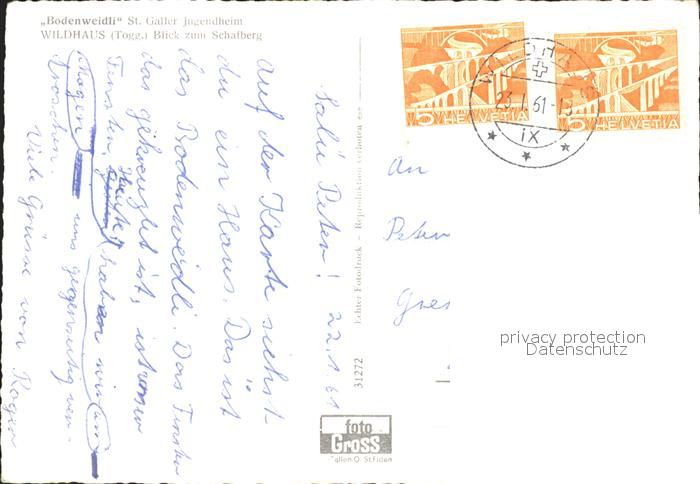 „Bodenweidli“ St. Galler Jugendheim
WILDHAUS (Togg.) Blick zum Schafberg
Salü Peter! 22.1.61
Auf der Karte siehst
du ein Haus. Das ist
das Bodenweidli. Das Fenster
das gekreuzlet ist, ist unser
Fenster. Heute haben wir
uns gegenseitig ver-
droschen.
Viele Grüsse von Roger
31272 Echter Fotodruck – Reproduktion verboten
foto
GROSS
St. Gallen O St.Fiden
5 HELVETIA
5 HELVETIA
WILDHAUS
23.1.61
IX
An
Peter
privacy protection
Datenschutz